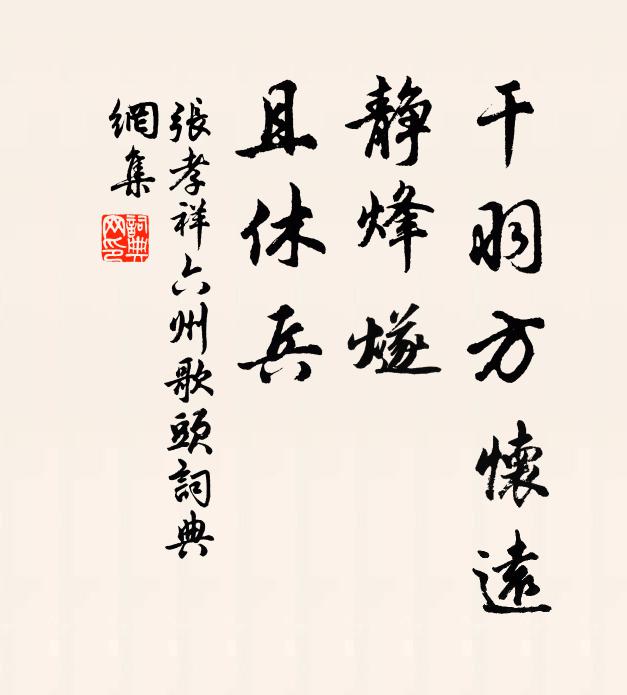 干羽方懷遠
静烽燧
且休兵
張孝祥六州歌頭詞典
網集
詞典
网印